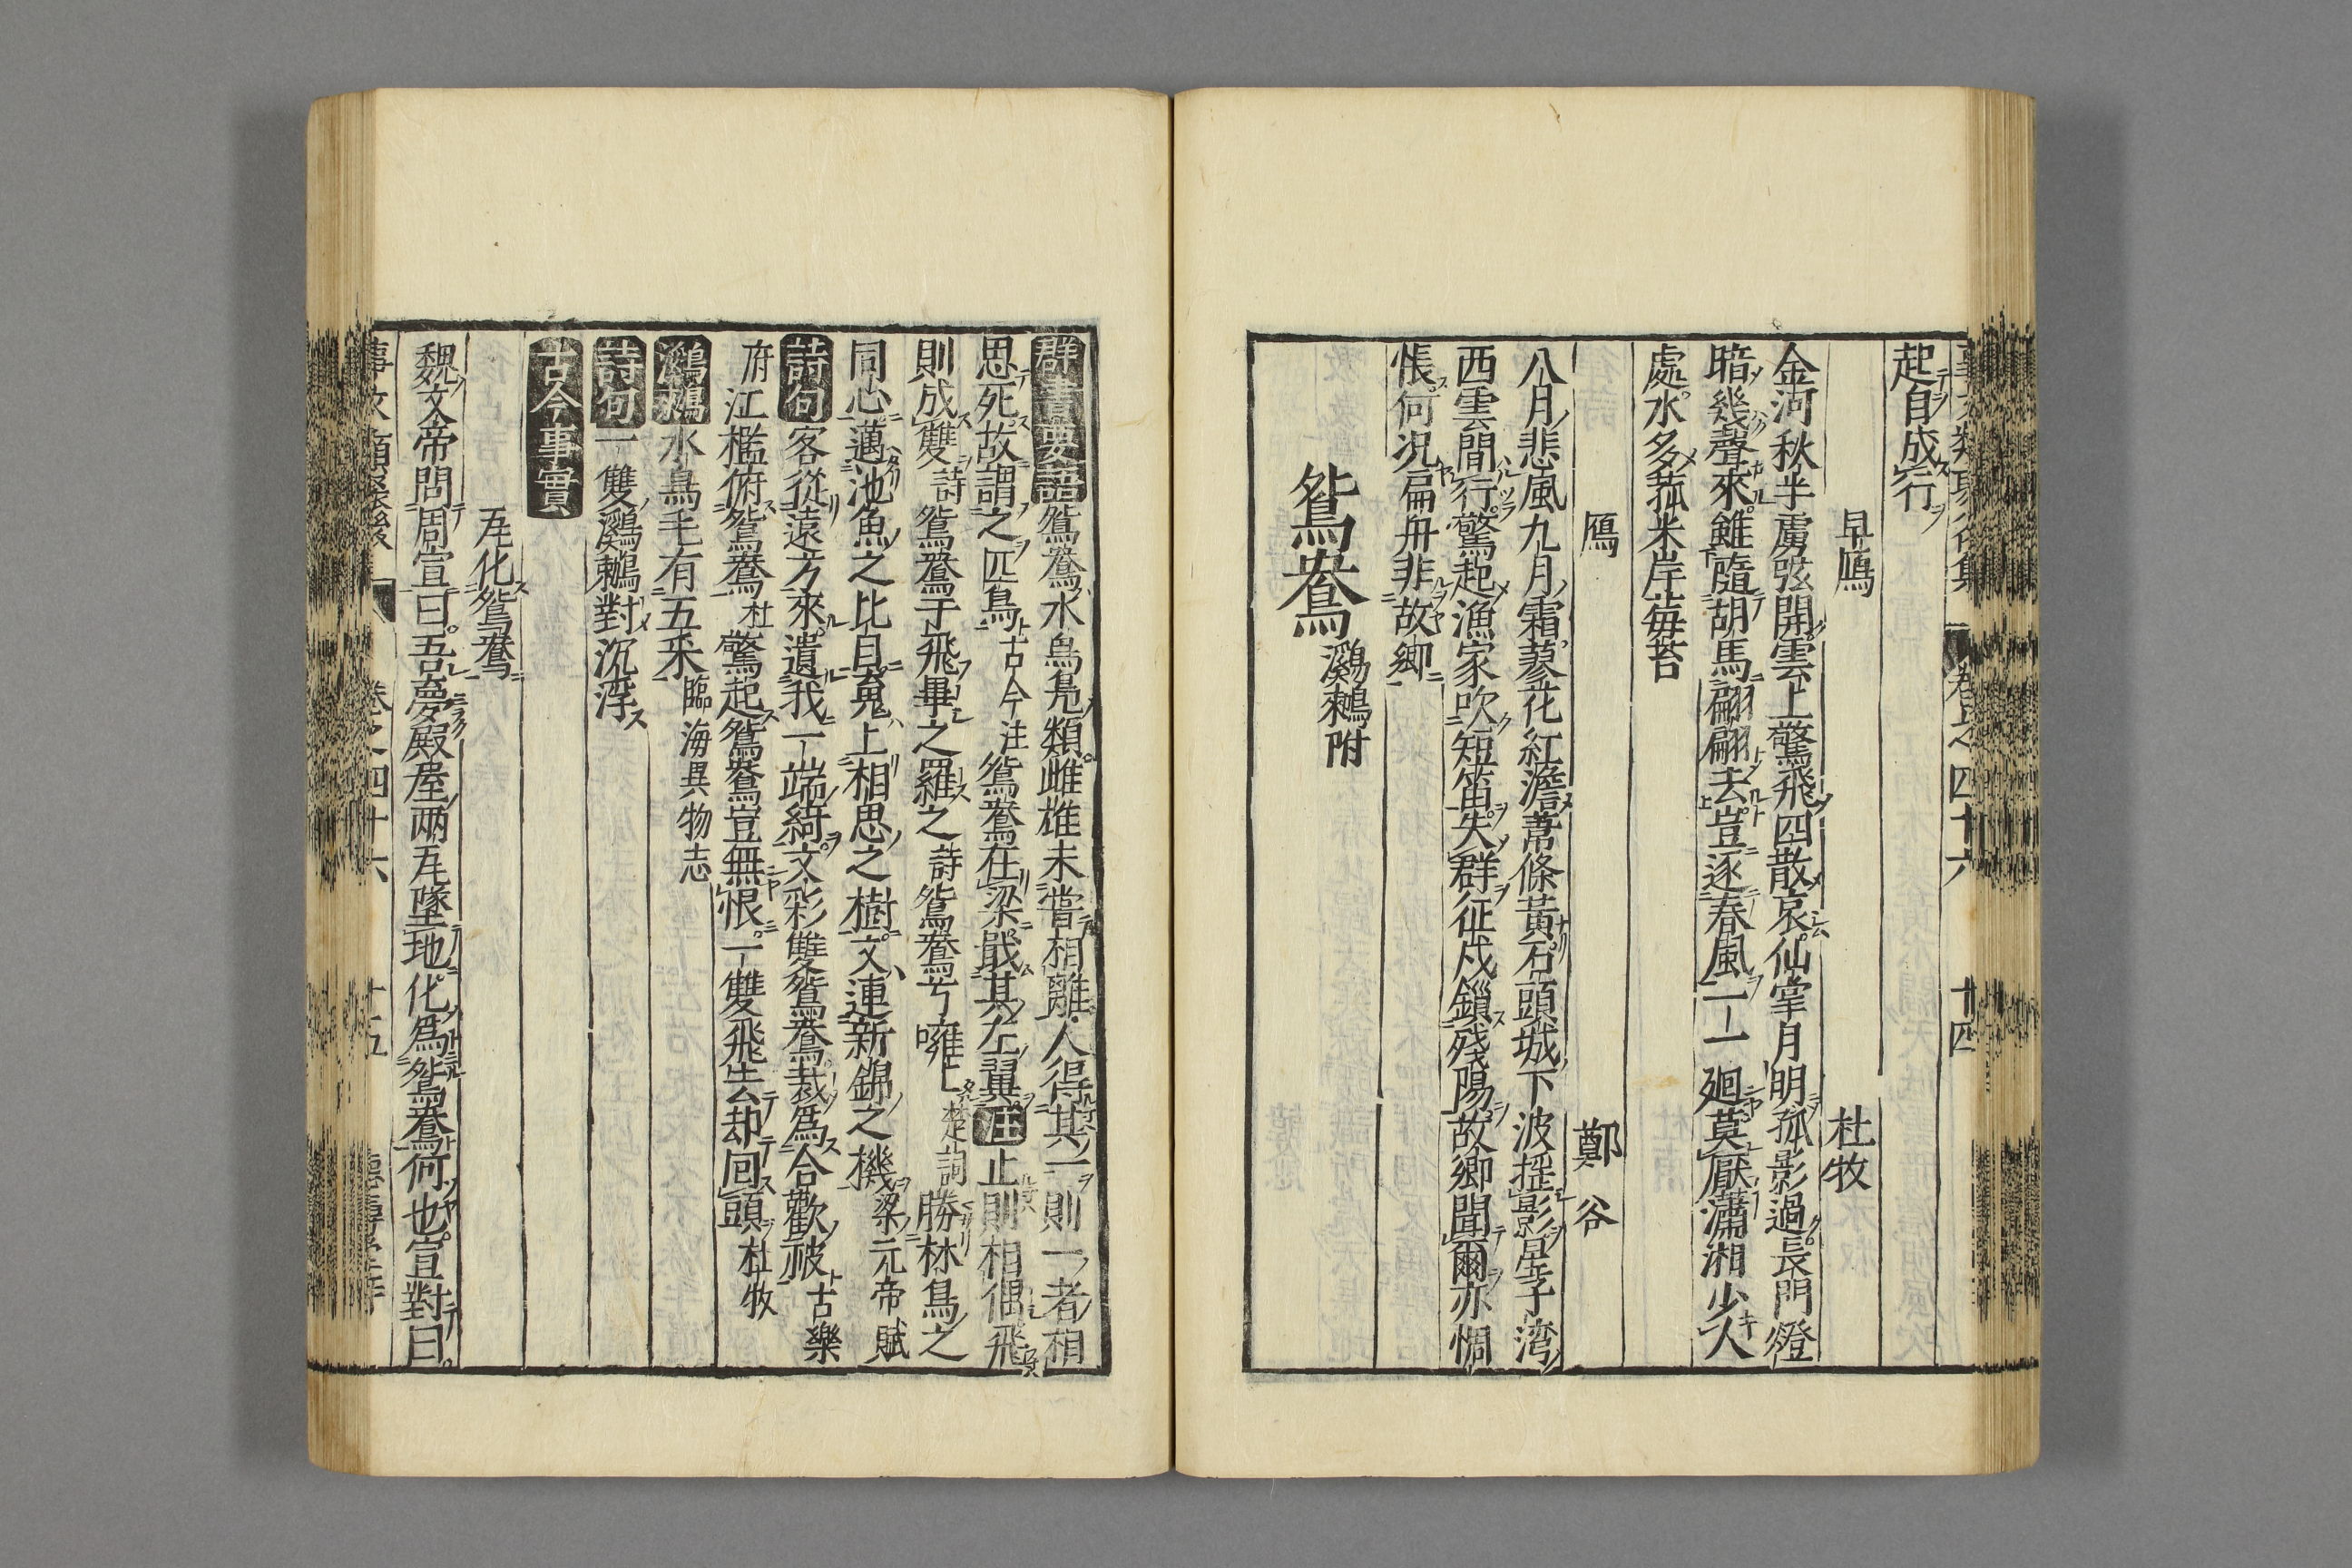 起自成行
早鴈 杜牧
金河秋半虜弦開雲上驚飛四散哀仙掌月明孤影過長門燈
暗幾聲來雖隨胡馬翩翩去豈逐春風一一廻莫厭瀟湘少人
處水多菰米岸莓苔
鴈 鄭谷
八月悲風九月霜蓼花紅澹葦條黃石頭城下波搖影星子湾
西雲間行驚起漁家吹短笛失群征戍鎻殘陽故鄉聞爾亦惆
悵何况扁舟非故鄉
鴛鴦 鸂鶒附
群書要語 鴛鴦水鳥鳬類雌雄未甞相離人得其一則一者相
思死故謂之匹鳥古今注鴛鴦在梁戢其左翼注止則相偶飛
則成雙詩鴛鴦于飛畢之羅之詩鴛鴦兮噰々楚詞勝林鳥之
同心邁池魚之比目䰟上相思之樹文連新錦之機梁元帝賦
詩句 客從遠方來遺我一端綺文彩雙鴛鴦裁為合歡被古樂
府江檻俯鴛鴦杜驚起鴛鴦豈無恨一雙飛去却回頭杜牧
鸂鶒 水鳥毛有五采臨海異物志
詩句 一雙鸂鶒對沉浮
古今事實
瓦化鴛鴦
魏文帝問周宣曰吾夢殿屋兩瓦墜地化為鴛鴦何也宣對曰
卷之四十六 十五